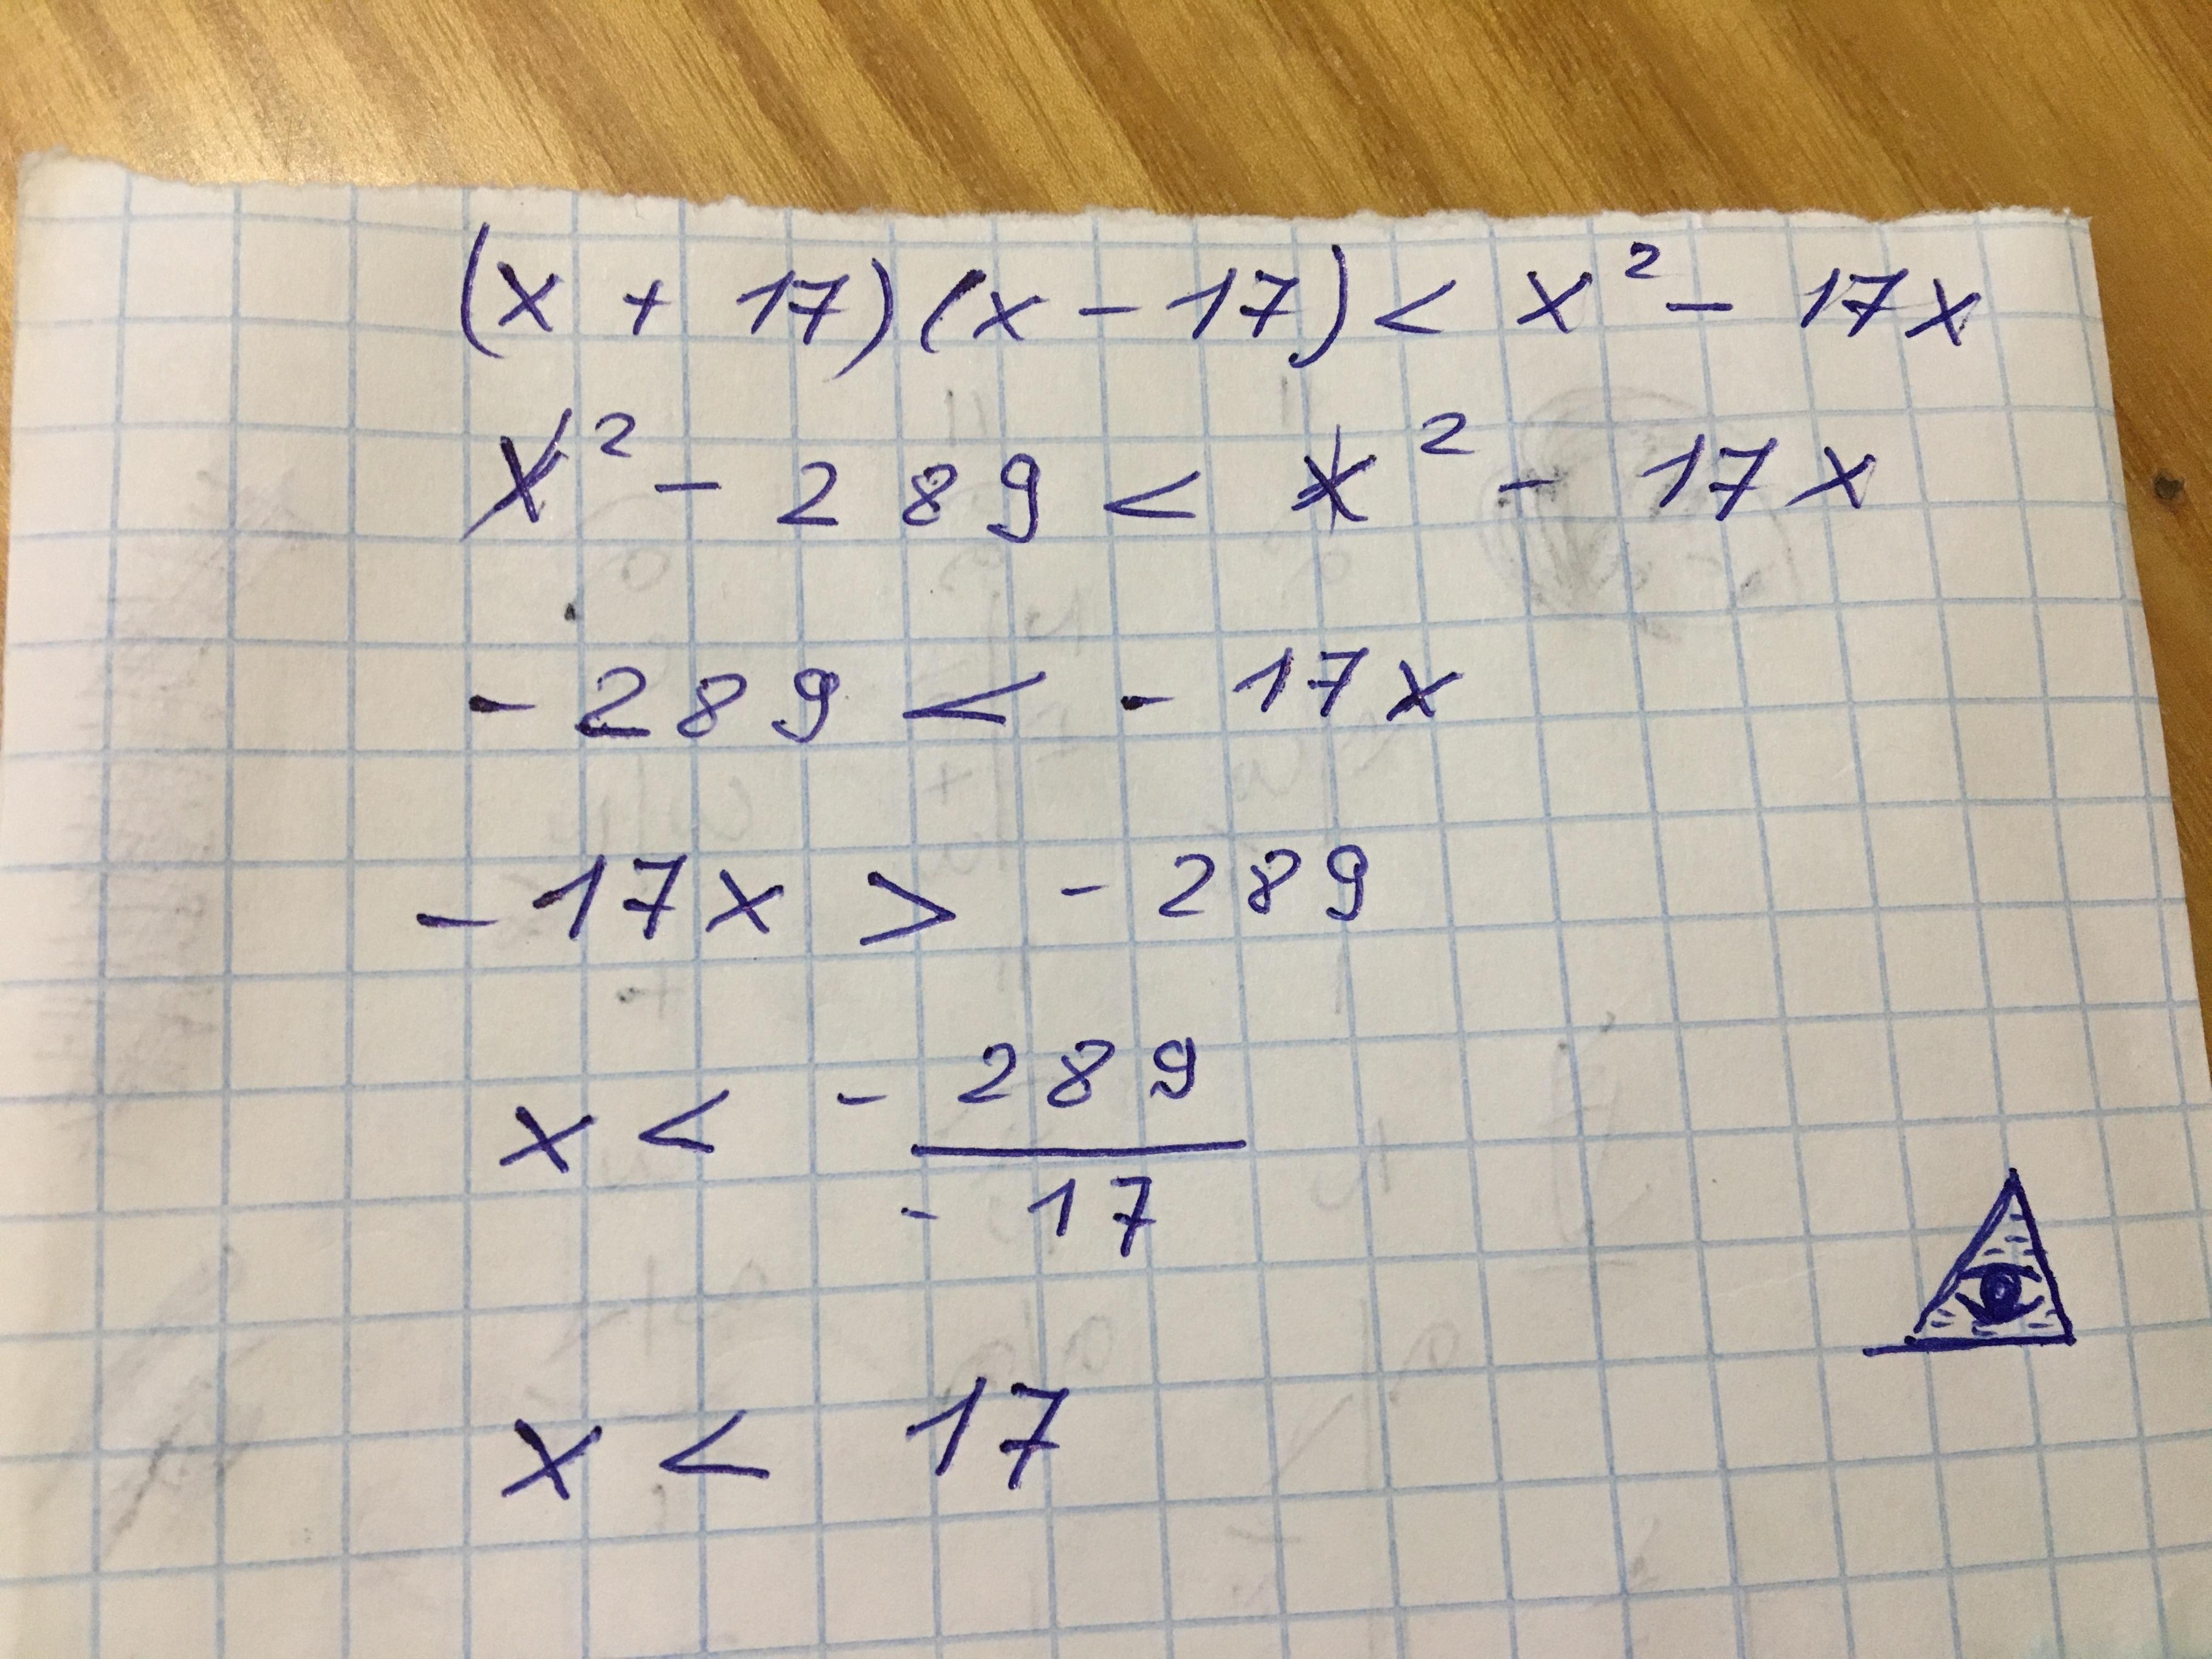 (x + 17)(x - 17) < x² - 17x
x² - 289 < x² - 17x
-289 < -17x
-17x > -289
x < -289/-17
x < 17